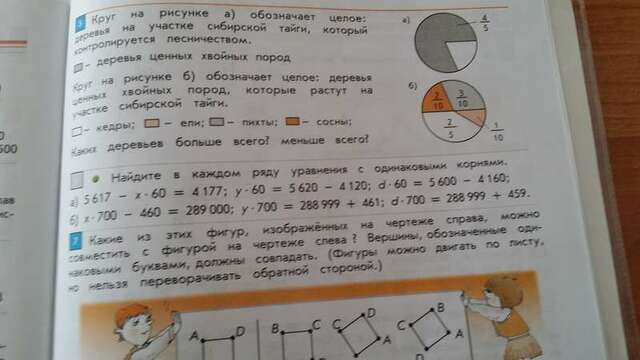 5 Круг на рисунке а) обозначает целое:
деревья на участке сибирской тайги, который
контролируется лесничеством.
– деревья ценных хвойных пород
Круг на рисунке б) обозначает целое: деревья
ценных хвойных пород, которые растут на
участке сибирской тайги.
– кедры; – ели; – пихты; – сосны;
Каких деревьев больше всего? меньше всего?
а)
4/5
б)
2/10 3/10
2/5 1/10
Найдите в каждом ряду уравнения с одинаковыми корнями.
а) 5 617 – x · 60 = 4 177; y · 60 = 5 620 – 4 120; d · 60 = 5 600 – 4 160;
б) x · 700 – 460 = 289 000; y · 700 = 288 999 + 461; d · 700 = 288 999 + 459.
7 Какие из этих фигур, изображённых на чертеже справа, можно
совместить с фигурой на чертеже слева? Вершины, обозначенные оди-
наковыми буквами, должны совпадать. (Фигуры можно двигать по листу,
но нельзя переворачивать обратной стороной.)
A D B C C D A C B A
500
ис-